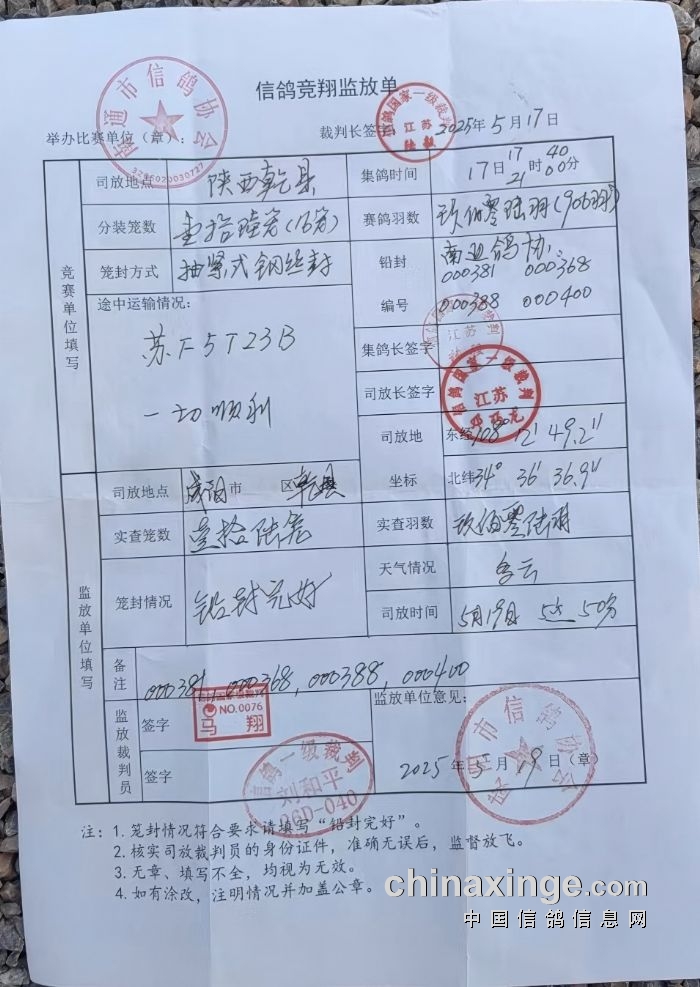 信鸽竞翔监放单
南通市信鸽协会
3206020030727
举办比赛单位（章）:
裁判长签字
信鸽国家一级裁判
江苏
2025年5月17日
竞赛单位填写
司放地点 陕西乾县 集鸽时间 17日17 21时40 00分
分装笼数 壹拾陆笼(16笼) 赛鸽羽数 玖佰零陆羽(906羽)
笼封方式 抽紧式钢丝封 铅封编号 南通鸽协.
000381 000368
000388 000400
途中运输情况:
苏F5T23B
一切顺利
集鸽长签字
江苏
司放长签字
信鸽国家一级裁判
江苏
司放地坐标 东经108° 12' 49.2"
北纬34° 36' 36.9"
监放单位填写
司放地点 咸阳市 区乾县
实查笼数 壹拾陆笼 实查羽数 玖佰零陆羽
笼封情况 铅封完好 天气情况 多云
司放时间 5月19日 5时50分
备注 000381,000368,000388,000400
监放裁判员
签字
NO.0076
马翔
签字
信鸽一级裁判
刘和平
DGD-040
监放单位意见:
市信鸽协会
2025年5月19日（章）
注：1. 笼封情况符合要求请填写“铅封完好”。
2. 核实司放裁判员的身份证件，准确无误后，监督放飞。
3. 无章、填写不全，均视为无效。
4. 如有涂改，注明情况并加盖公章。
chinaxinge.com
中国信鸽信息网